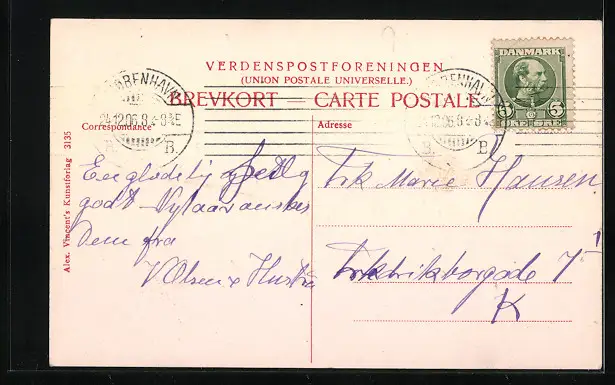 VERDENSPOSTFORENINGEN
(UNION POSTALE UNIVERSELLE.)
BREVKORT — CARTE POSTALE
DANMARK
5 5
ØRE ØRE
KJØBENHAVN
24.12.06. 8
B.
KJØBENHAVN
24.12.06. 8
B. B
Correspondance
Adresse
Alex. Vincent's Kunstforlag 3135
En glædelig Jul og
godt Nytaar ønskes
Dem fra
V Olsen & Hustru
Frk Marie Hansen
Frederikborgade 7
K